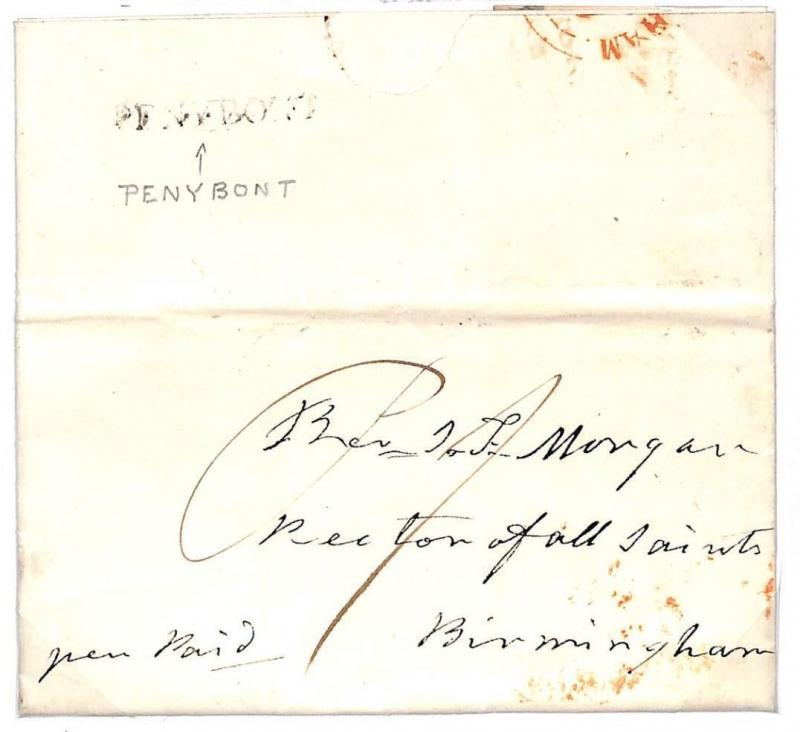 HAM
PENYBONT
PENYBONT
Rev J. F. Morgan
Rector of all Saints
pen Paid Birmingham